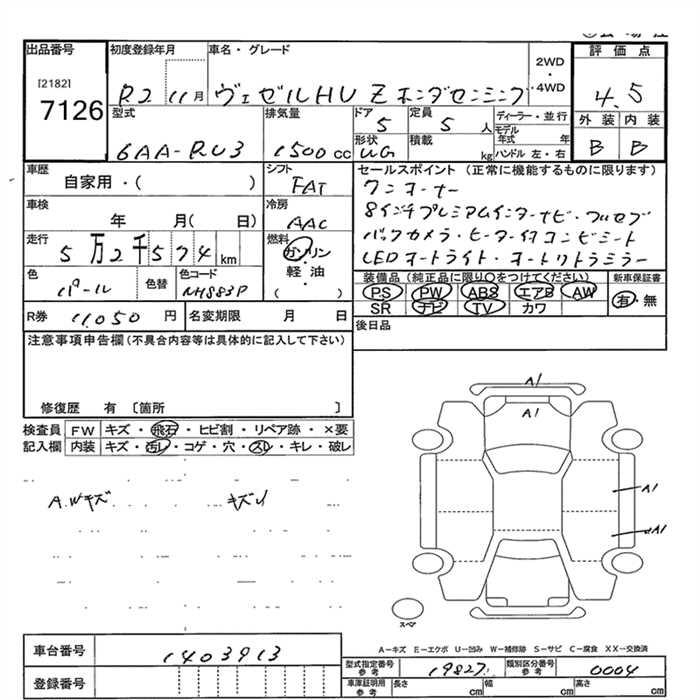 出品番号 初度登録年月 車名・グレード 評価点
[2182]
7126 R2 11月 ヴェゼルHV Z ホンダセンシング 2WD・4WD 4.5
型式 排気量 ドア 定員 ディーラー・並行 外装 内装
6AA-RU3 1500cc 5 5人 モデル年式 年 B B
形状 積載 kg ハンドル 左・右
UG
車歴 シフト セールスポイント(正常に機能するものに限ります)
自家用・( ) FAT ワンオーナー
車検 冷房 8インチプレミアムインターナビ・フルセグ
年 月( 日) AAC バックカメラ・ヒーター付コンビシート
走行 燃料 LEDオートライト・オートリトラミラー
5万2千574km ガソリン・軽油( )
色 色替 色コード 装備品(純正品に限り○をつけてください) 新車保証書
パール NH883P PS PW ABS エアB AW 有・無
SR ナビ TV カワ
R券 11.050円 名変期限 月 日 後日品
注意事項申告欄(不具合内容等は具体的に記入して下さい)
修復歴 有 [箇所 ]
検査員 FW キズ・飛石・ヒビ割・リペア跡・×要
記入欄 内装 キズ・汚レ・コゲ・穴・スレ・キレ・破レ
A.Wキズ
A1
A1
A1
A1
スペア
A-キズ E-エクボ U-凹み W-補修跡 S-サビ C-腐食 XX-交換済
車台番号 1403913
型式指定番号 参考 19827 類別区分番号 参考 0004
登録番号 車庫証明用 参考 長さ cm 幅 cm 高さ cm